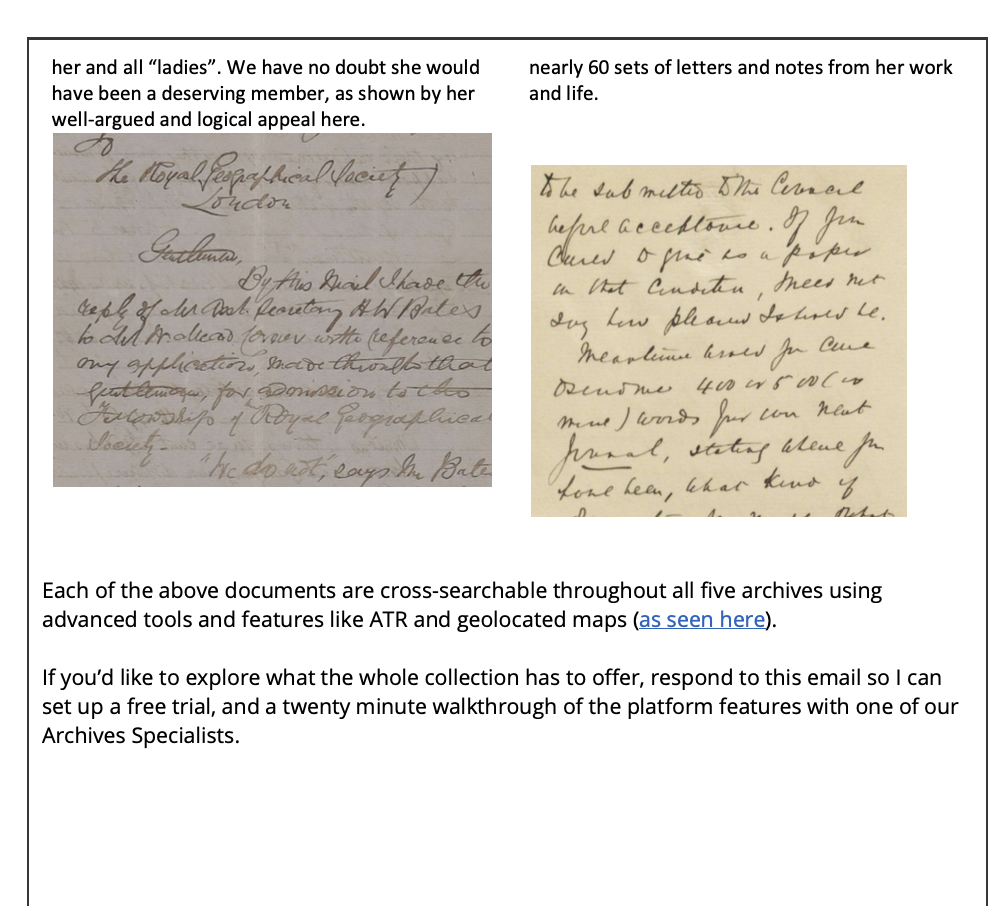 her and all “ladies”. We have no doubt she would
have been a deserving member, as shown by her
well-argued and logical appeal here.
To
the Royal Geographical Society
London
Gentlemen,
By this Mail I have the
reply of Asst. Secretary H. W. Bates
to with reference to
my application, made through that
gentleman, for admission to the
Fellowship of Royal Geographical
Society-
"We do not", says Mr Bate
nearly 60 sets of letters and notes from her work
and life.
to be submitted to the Council
before acceptance. If you
cared to give us a paper
on that condition, I need not
say how pleased I should be.
Meantime would you care
to send me 400 or 500 (or
more) words for our next
Journal, stating where you
have been, what kind of
Each of the above documents are cross-searchable throughout all five archives using
advanced tools and features like ATR and geolocated maps (as seen here).
If you’d like to explore what the whole collection has to offer, respond to this email so I can
set up a free trial, and a twenty minute walkthrough of the platform features with one of our
Archives Specialists.